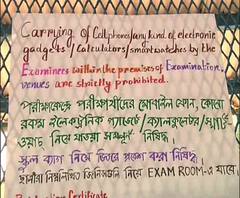 Carrying of Cellphones/any kind of electronic
gadgets/Calculators/smartwatches by the
Examinees within the premises of Examination
venues are strictly prohibited.
পরীক্ষাকেন্দ্রে পরীক্ষার্থীদের মোবাইল ফোন, কোনো
রকম ইলেকট্রনিক গ্যাজেট/ক্যালকুলেটর/স্মার্ট
ওয়াচ নিয়ে যাওয়া সম্পূর্ণ নিষিদ্ধ
স্কুল ব্যাগ নিয়ে ভিতরে প্রবেশ করা নিষিদ্ধ।
ছাত্রীরা নিম্নলিখিত জিনিসগুলি নিয়ে EXAM ROOM-এ যাবে।
Certificate